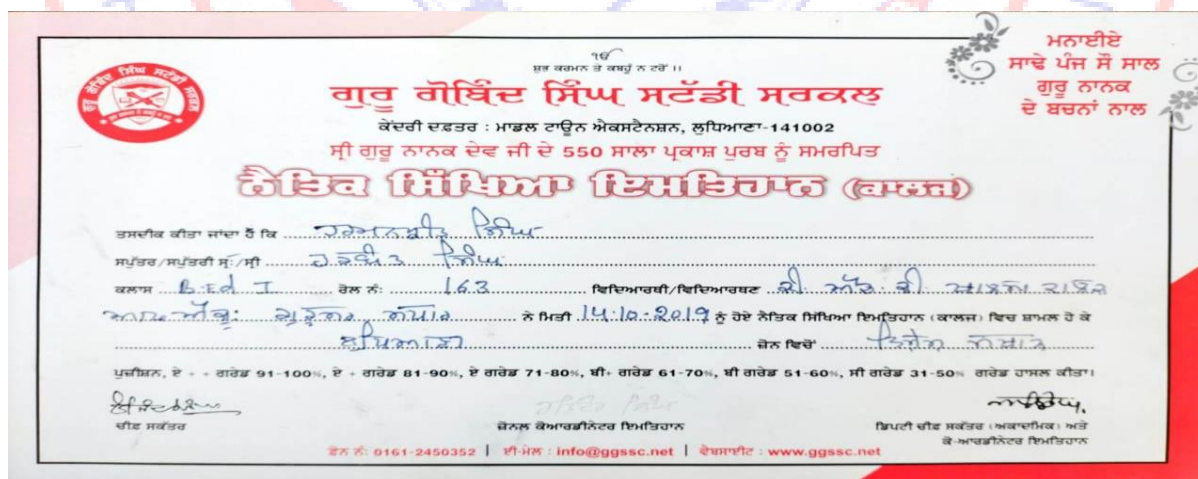 ੴ
ਸ਼ੁਭ ਕਰਮਨ ਤੇ ਕਬਹੂੰ ਨ ਟਰੋਂ ।।
ਗੁਰੂ ਗੋਬਿੰਦ ਸਿੰਘ ਸਟੱਡੀ ਸਰਕਲ
ਮਨਾਈਏ
ਸਾਢੇ ਪੰਜ ਸੌ ਸਾਲ
ਗੁਰੂ ਨਾਨਕ
ਦੇ ਬਚਨਾਂ ਨਾਲ
ਕੇਂਦਰੀ ਦਫ਼ਤਰ : ਮਾਡਲ ਟਾਊਨ ਐਕਸਟੈਨਸ਼ਨ, ਲੁਧਿਆਣਾ-141002
ਸ੍ਰੀ ਗੁਰੂ ਨਾਨਕ ਦੇਵ ਜੀ ਦੇ 550 ਸਾਲਾ ਪ੍ਰਕਾਸ਼ ਪੁਰਬ ਨੂੰ ਸਮਰਪਿਤ
ਨੈਤਿਕ ਸਿੱਖਿਆ ਇਮਤਿਹਾਨ (ਕਾਲਜ)
ਤਸਦੀਕ ਕੀਤਾ ਜਾਂਦਾ ਹੈ ਕਿ ਹਰਮਨਪ੍ਰੀਤ ਸਿੰਘ
ਸਪੁੱਤਰ/ਸਪੁੱਤਰੀ ਸ੍ਰ:/ਸ੍ਰੀ ਸਿੰਘ
ਕਲਾਸ B.Ed I ਰੋਲ ਨੰ: 163 ਵਿਦਿਆਰਥੀ/ਵਿਦਿਆਰਥਣ ਬੀ. ਖਾਲਸਾ ਕਾਲਜ
ਆਫ ਗੁਰੂਸਰ ਸਧਾਰ ਨੇ ਮਿਤੀ 14.10.2019 ਨੂੰ ਹੋਏ ਨੈਤਿਕ ਸਿੱਖਿਆ ਇਮਤਿਹਾਨ (ਕਾਲਜ) ਵਿਚ ਸ਼ਾਮਲ ਹੋ ਕੇ
ਲੁਧਿਆਣਾ ਜ਼ੋਨ ਵਿਚੋਂ
ਪੁਜ਼ੀਸ਼ਨ, ਏ + + ਗਰੇਡ 91-100%, ਏ + ਗਰੇਡ 81-90%, ਏ ਗਰੇਡ 71-80%, ਬੀ+ ਗਰੇਡ 61-70%, ਬੀ ਗਰੇਡ 51-60%, ਸੀ ਗਰੇਡ 31-50% ਗਰੇਡ ਹਾਸਲ ਕੀਤਾ।
ਚੀਫ਼ ਸਕੱਤਰ
ਜ਼ੋਨਲ ਕੋਆਰਡੀਨੇਟਰ ਇਮਤਿਹਾਨ
ਡਿਪਟੀ ਚੀਫ਼ ਸਕੱਤਰ (ਅਕਾਦਮਿਕ) ਅਤੇ
ਕੋ-ਆਰਡੀਨੇਟਰ ਇਮਤਿਹਾਨ
ਫ਼ੋਨ ਨੰ: 0161-2450352 | ਈ-ਮੇਲ : info@ggssc.net | ਵੈਬਸਾਈਟ : www.ggssc.net